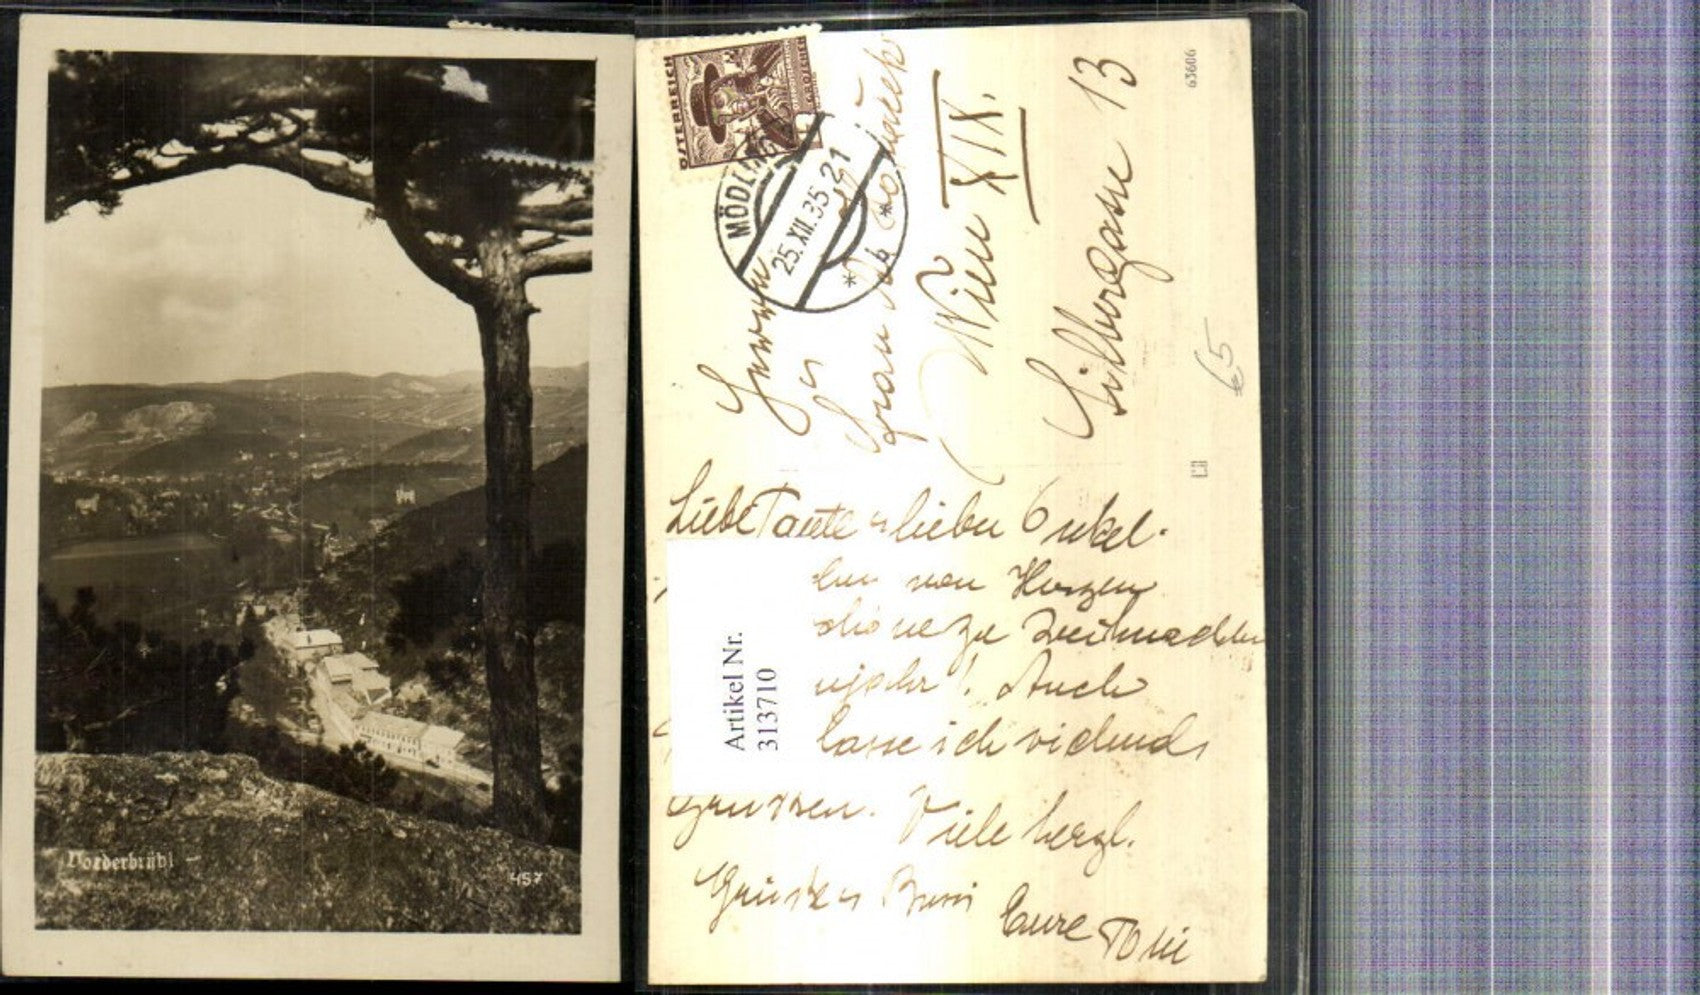 Vorderbrühl
457
ÖSTERREICH
GROSCHEN
MÖDLING
25.XII.35 21
Herrn
u
Frau
Wien XIX.
Silbergasse 13
63606
65
Liebe Tante u lieber Onkel.
von Herzen
schöne Weihnachten
Auch
lasse ich vielmals
grüssen. Viele herzl.
Grüsse u Bussi
Eure Toni
Artikel Nr.
313710